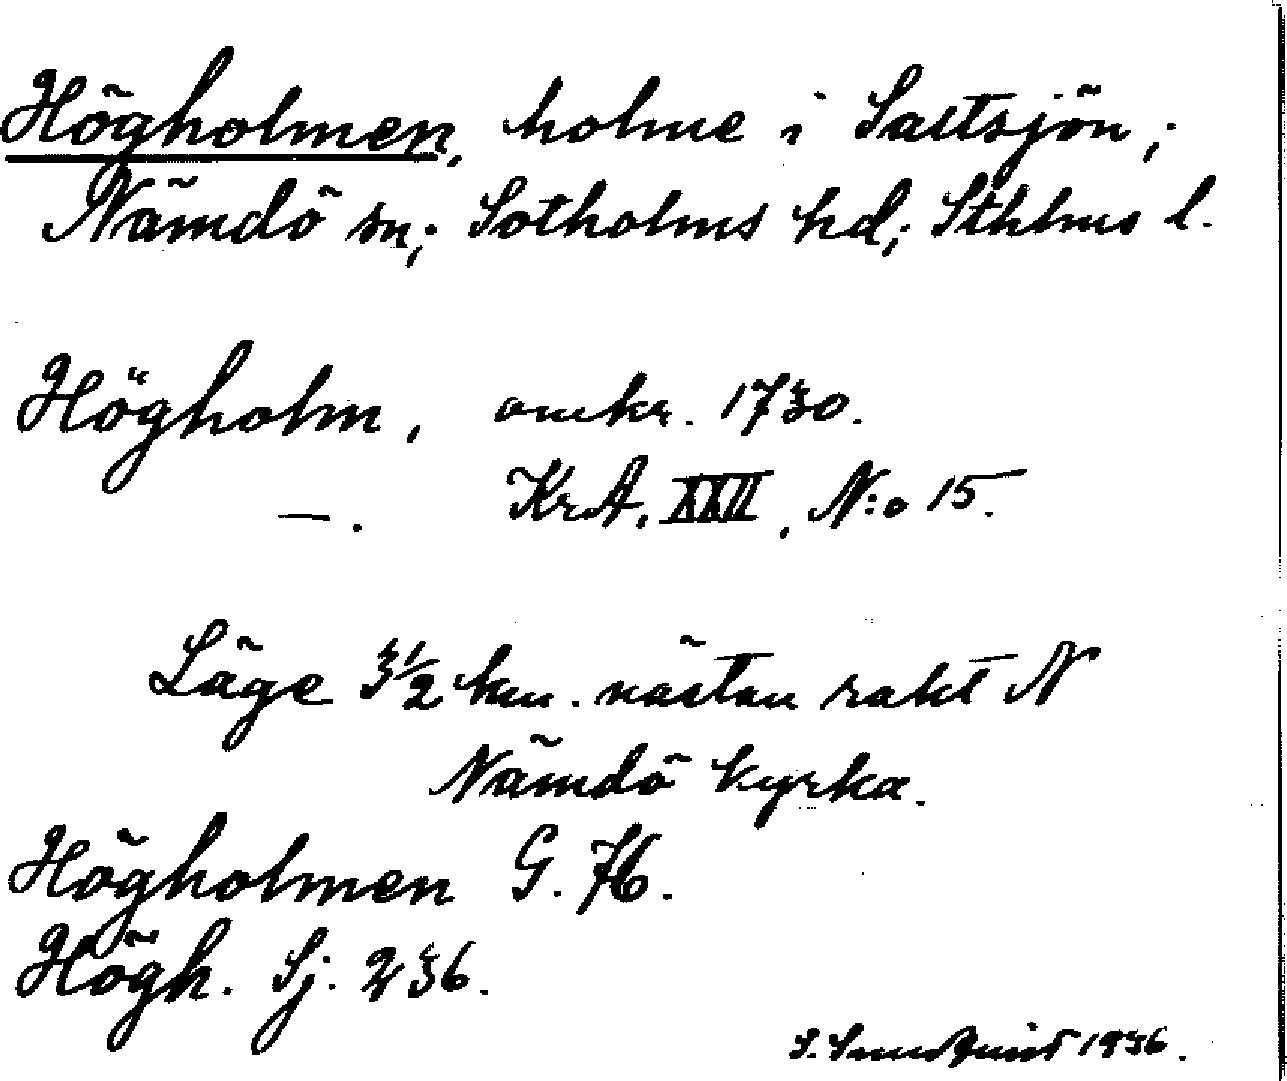 Högholmen, holme i Saltsjön;
Nämdö sn; Sotholms hd; Sthlms l.
Högholm, omkr. 1730.
—. KrA, XXII, N:o 15.
Läge 3 1/2 km. nästan rakt N
Nämdö kyrka.
Högholmen G. 76.
Högh. Sj. 236.
S. 1936.